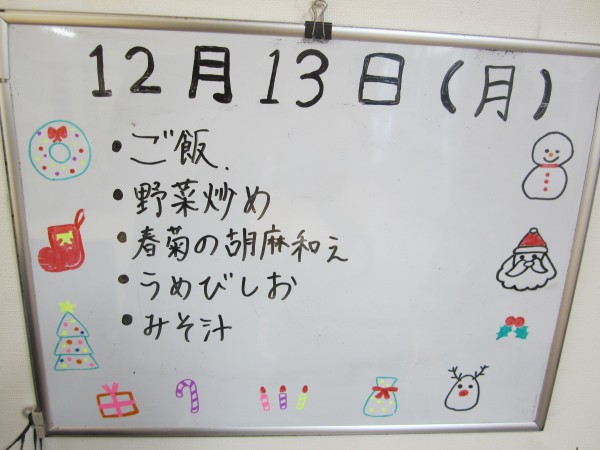 12月13日(月)
・ご飯
・野菜炒め
・春菊の胡麻和え
・うめびしお
・みそ汁